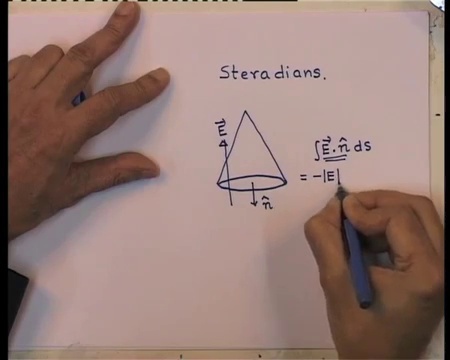 Steradians.
E⃗
∫E⃗ . n̂ ds
= -|E|
n̂